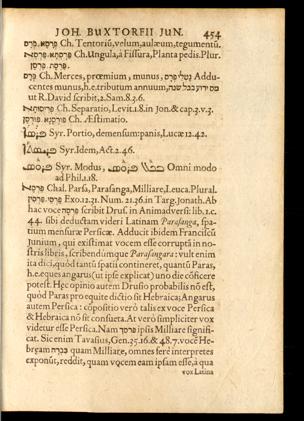 JOH. BUXTORFII JUN. 454
פרסא, פרס Ch. Tentoriũ, velum, aulæum, tegumentũ.
Ch. Ungula, à Fissura, Planta pedis. Plur.
פרס Ch. Merces, præmium, munus, נטלי פרס Addu-
centes munus, h.e. tributum annuum, מס ידוע בכל שנה
ut R. David scribit, 2. Sam. 8. 3. 6.
Ch. Separatio, Levit. 1. 8. in Jon. & cap. 3. v. 3.
Ch. Æstimatio.
Syr. Portio, demensum: panis, Lucæ 12. 42.
Syr. Idem, Act. 2. 46.
Syr. Modus, Omni modo
ad Phil. 1. 18.
פרסא Chal. Parsa, Parasanga, Milliare, Leuca. Plural.
Exo. 12. 31. Num. 21. 36 in Targ. Jonath. Ab
hac voce פרסא scribit Drus. in Animadvers: lib. 1. c.
44. sibi deductam videri Latinam Parasanga, spa-
tium mensuræ Persicæ. Adducit ibidem Franciscũ
Junium, qui existimat vocem esse corruptã in no-
stris libris, scribendumque Parasangara: vult enim
ita dici, quòd tantũ spatii contineret, quantũ Paras,
h.e. eques angarus (ut ipse explicat) uno die côficere
potest. Hęc opinio autem Druso probabilis nõ est,
quòd Paras pro equite dictio sit Hebraica; Angarus
autem Persica: cópositio verò talis ex voce Persica
& Hebraica nõ sit consueta. At verò simpliciter vox
videtur esse Persica. Nam פרסך ipsis Milliare signifi-
cat. Sic enim Tavasius, Gen. 35. 16. & 48. 7. voce He-
bręam כברה quam Milliare, omnes ferè interpretes
exponũt, reddit, quam vocem eam ipsam esse, à qua
vox Latina